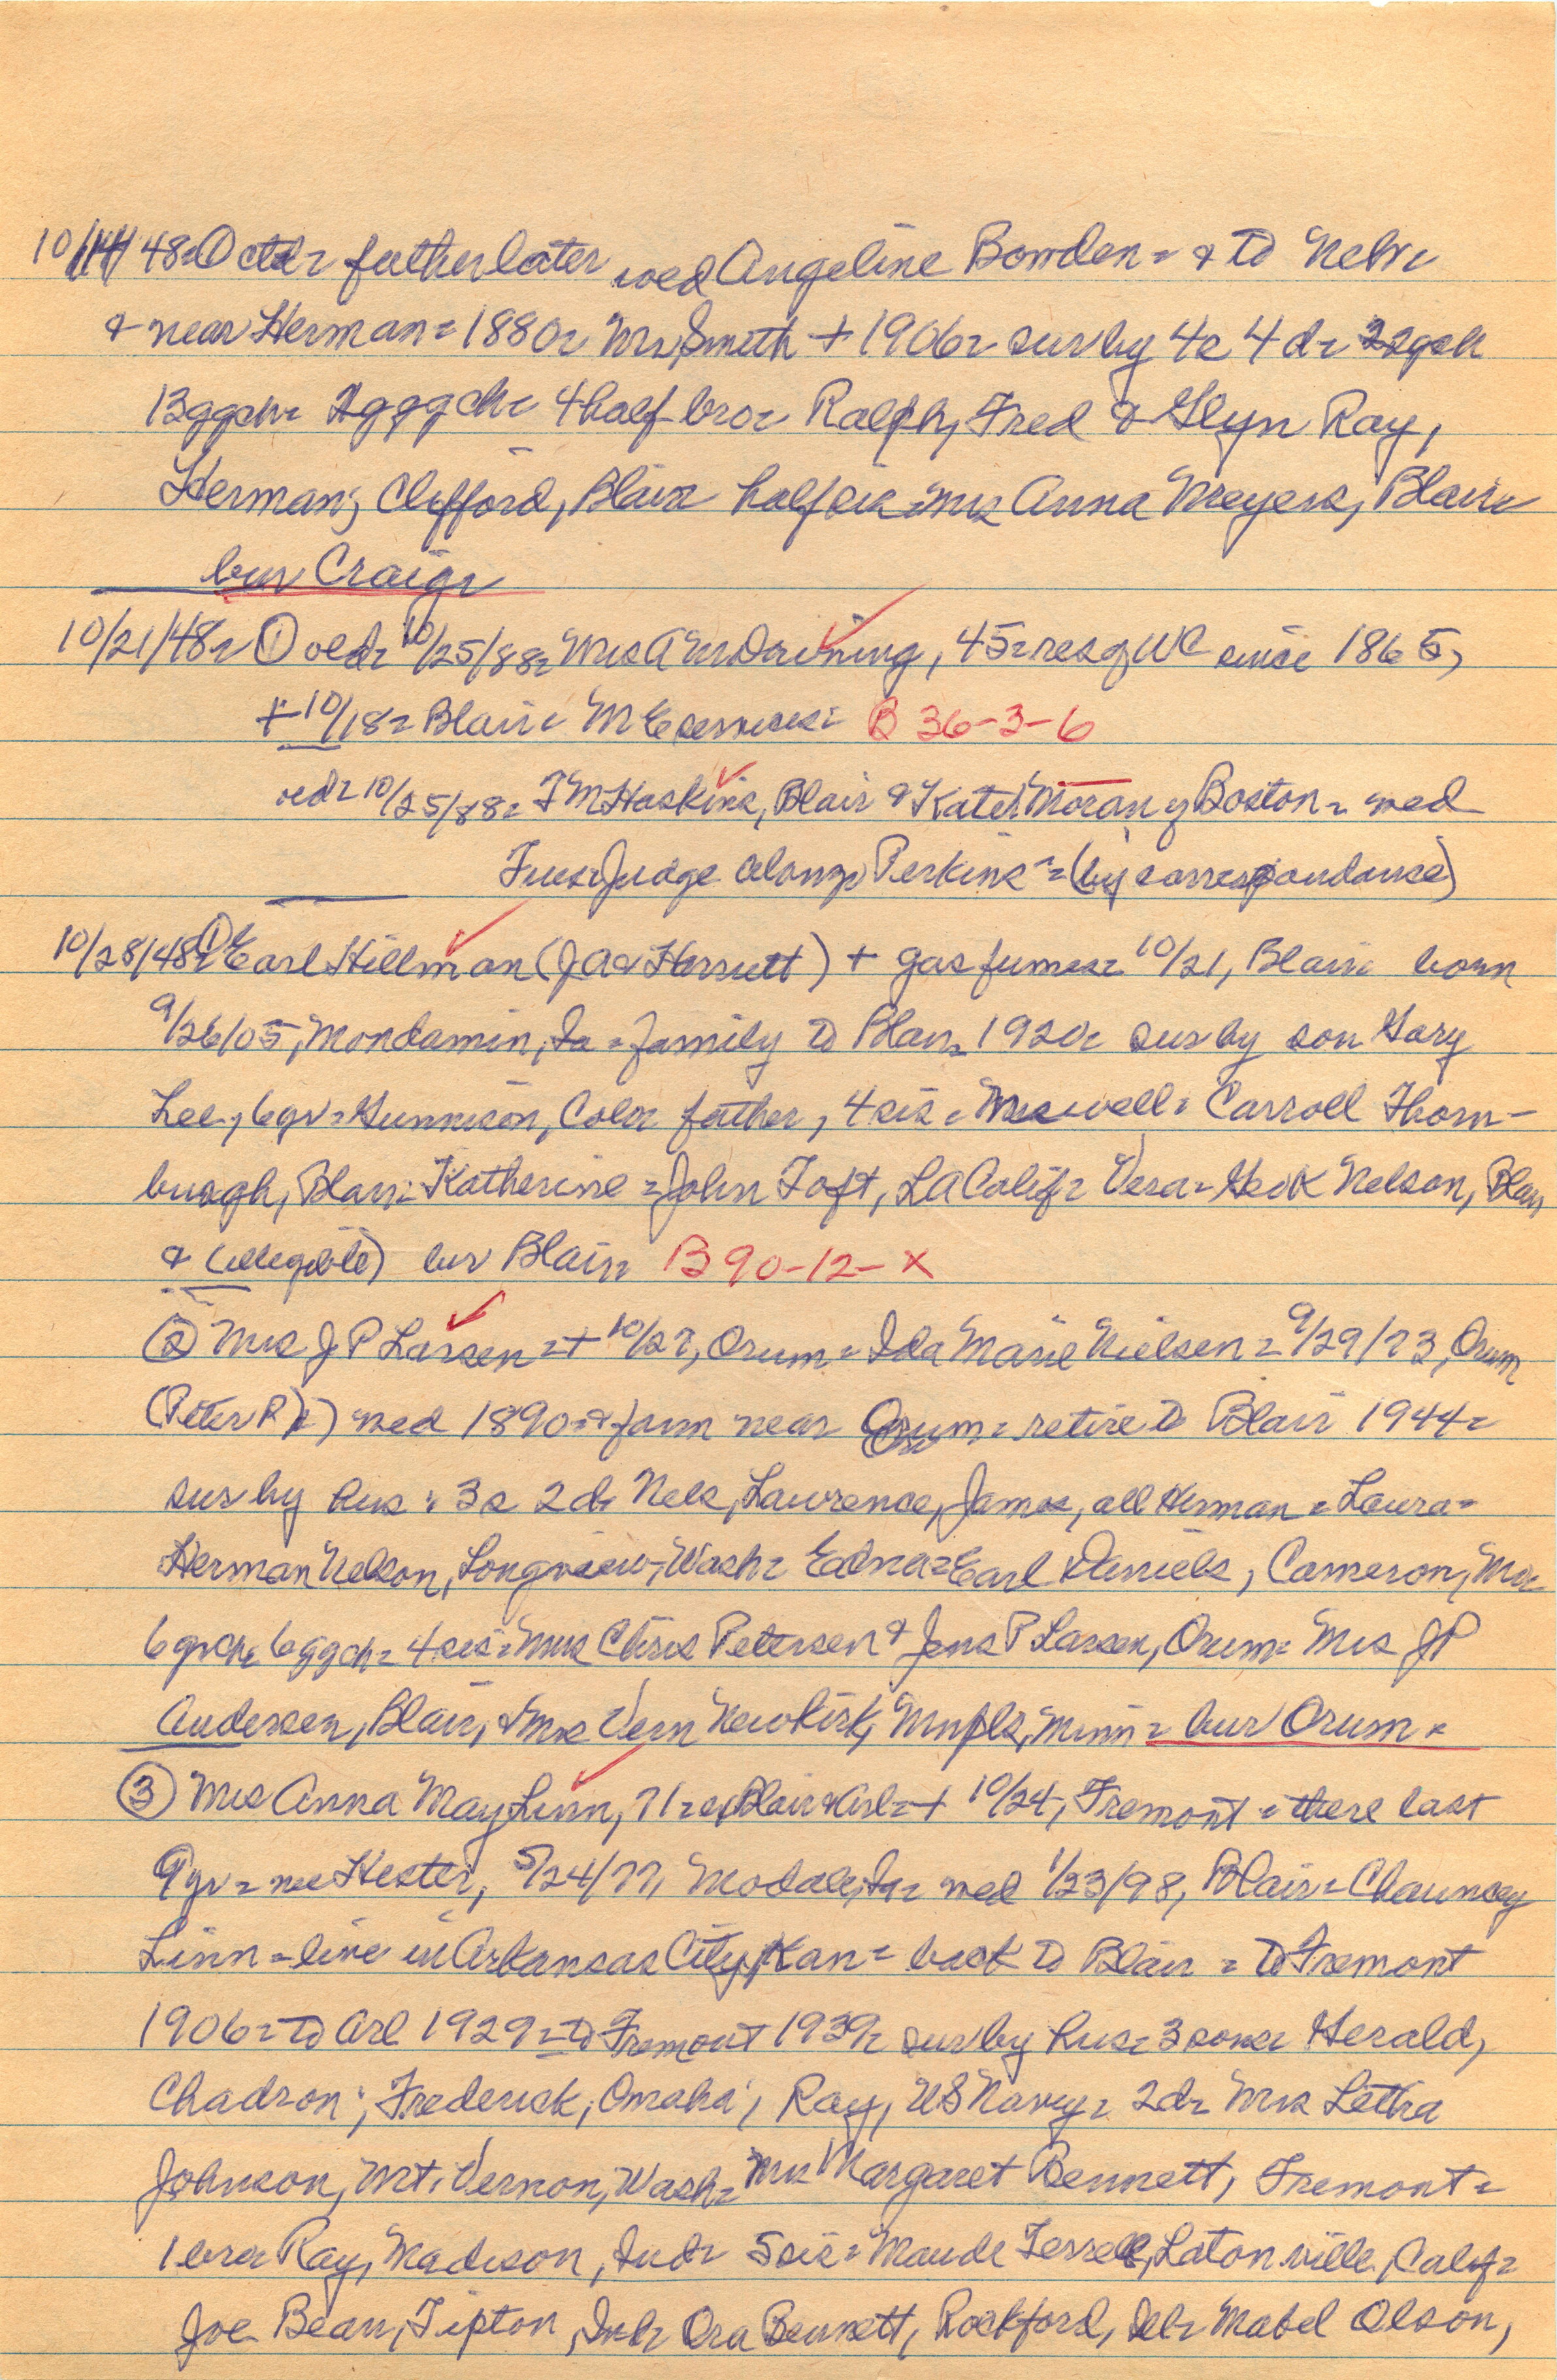 10/14/48 = ① ctd = father later wed Angeline Bowden = & to Nebr =
& near Herman = 1880 = Mrs Smith + 1906 = sur by 4s 4d = 22gch
13ggch = 2gggch = 4 half bro = Ralph, Fred & Glyn Ray,
Herman; Clifford, Blair = half sis = Mrs Anna Meyers, Blair =
bur Craig =
10/21/48 = ① oed = 10/25/88 = Mrs A M Downing, 45 = res of WC since 1865,
+ 10/18 = Blair = M E services = B 36-3-6
oed = 10/25/88 = F M Haskins, Blair & Kate Moran of Boston = wed
Tues = Judge Alonzo Perkins = (by correspondance)
10/28/48 = ① Earl Hillman (J A & Harriett) + gas fumes = 10/21, Blair = born
9/26/05, Mondamin, Ia = family to Blair = 1920 = sur by son Gary
Lee, 6yr = Gunnison, Colo = father, 4 sis = Carroll Thorn-
burgh, Blair = Katherine = John Toft, LA Calif = Vera = Geo K Nelson, Blair
& (illegible) bur Blair = B 90-12-X
② Mrs J P Larsen = + 10/27, Orum = Ida Marie Nielsen = 9/29/73, Orum
(Peter R) wed 1890 = & farm near Orum = retire to Blair 1944 =
sur by hus = 3s 2d = Nels, Lawrence, James, all Herman = Laura =
Herman Nelson, Longview, Wash = Edna = Earl Daniels, Cameron, Mo =
6 grch, 6ggch = 4 sis = Mrs Chris Petersen & Jens P Larsen, Orum = Mrs JP
Andersen, Blair, & Mrs Vern Newkirk, Mnpls, Minn = bur Orum =
③ Mrs Anna May Linn, 71 = of Blair & Arl = + 10/24, Fremont = there last
9yr = nee Hester, 5/24/77, Modale, Ia = wed 1/23/98, Blair = Chauncey
Linn = live in Arkansas City, Kan = back to Blair = to Fremont
1906 = to Arl 1929 = to Fremont 1939 = sur by hus = 3 sons = Herald,
Chadron; Frederick, Omaha; Ray, US Navy = 2d = Mrs Letha
Johnson, Mt. Vernon, Wash = Mrs Margaret Bennett, Fremont =
1 bro = Ray, Madison, Ind = 5 sis = Maude Terrell, Latonville, Calif =
Joe Bean, Tipton, Ind = Ora Bennett, Rockford, Ill = Mabel Olson,